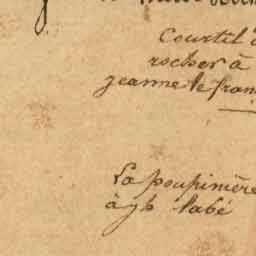 Courtil
rocher à
jeanne le fran
La poupinière
à jh labé